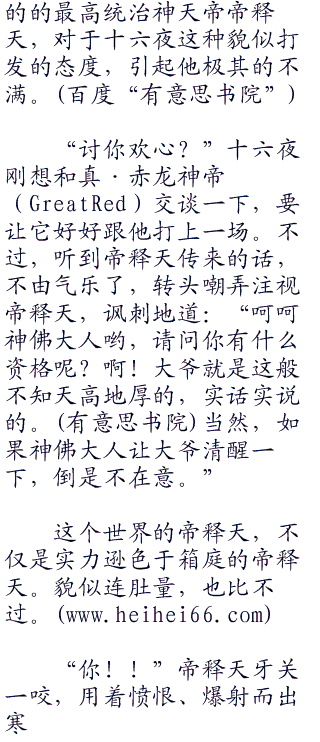 的的最高统治神天帝帝释
天，对于十六夜这种貌似打
发的态度，引起他极其的不
满。(百度“有意思书院”)
“讨你欢心？”十六夜
刚想和真·赤龙神帝
（GreatRed）交谈一下，要
让它好好跟他打上一场。不
过，听到帝释天传来的话，
不由气乐了，转头嘲弄注视
帝释天，讽刺地道：“呵呵
神佛大人哟，请问你有什么
资格呢？啊！大爷就是这般
不知天高地厚的，实话实说
的。(有意思书院)当然，如
果神佛大人让大爷清醒一
下，倒是不在意。”
这个世界的帝释天，不
仅是实力逊色于箱庭的帝释
天。貌似连肚量，也比不
过。(www.heihei66.com)
“你！！”帝释天牙关
一咬，用着愤恨、爆射而出
寒